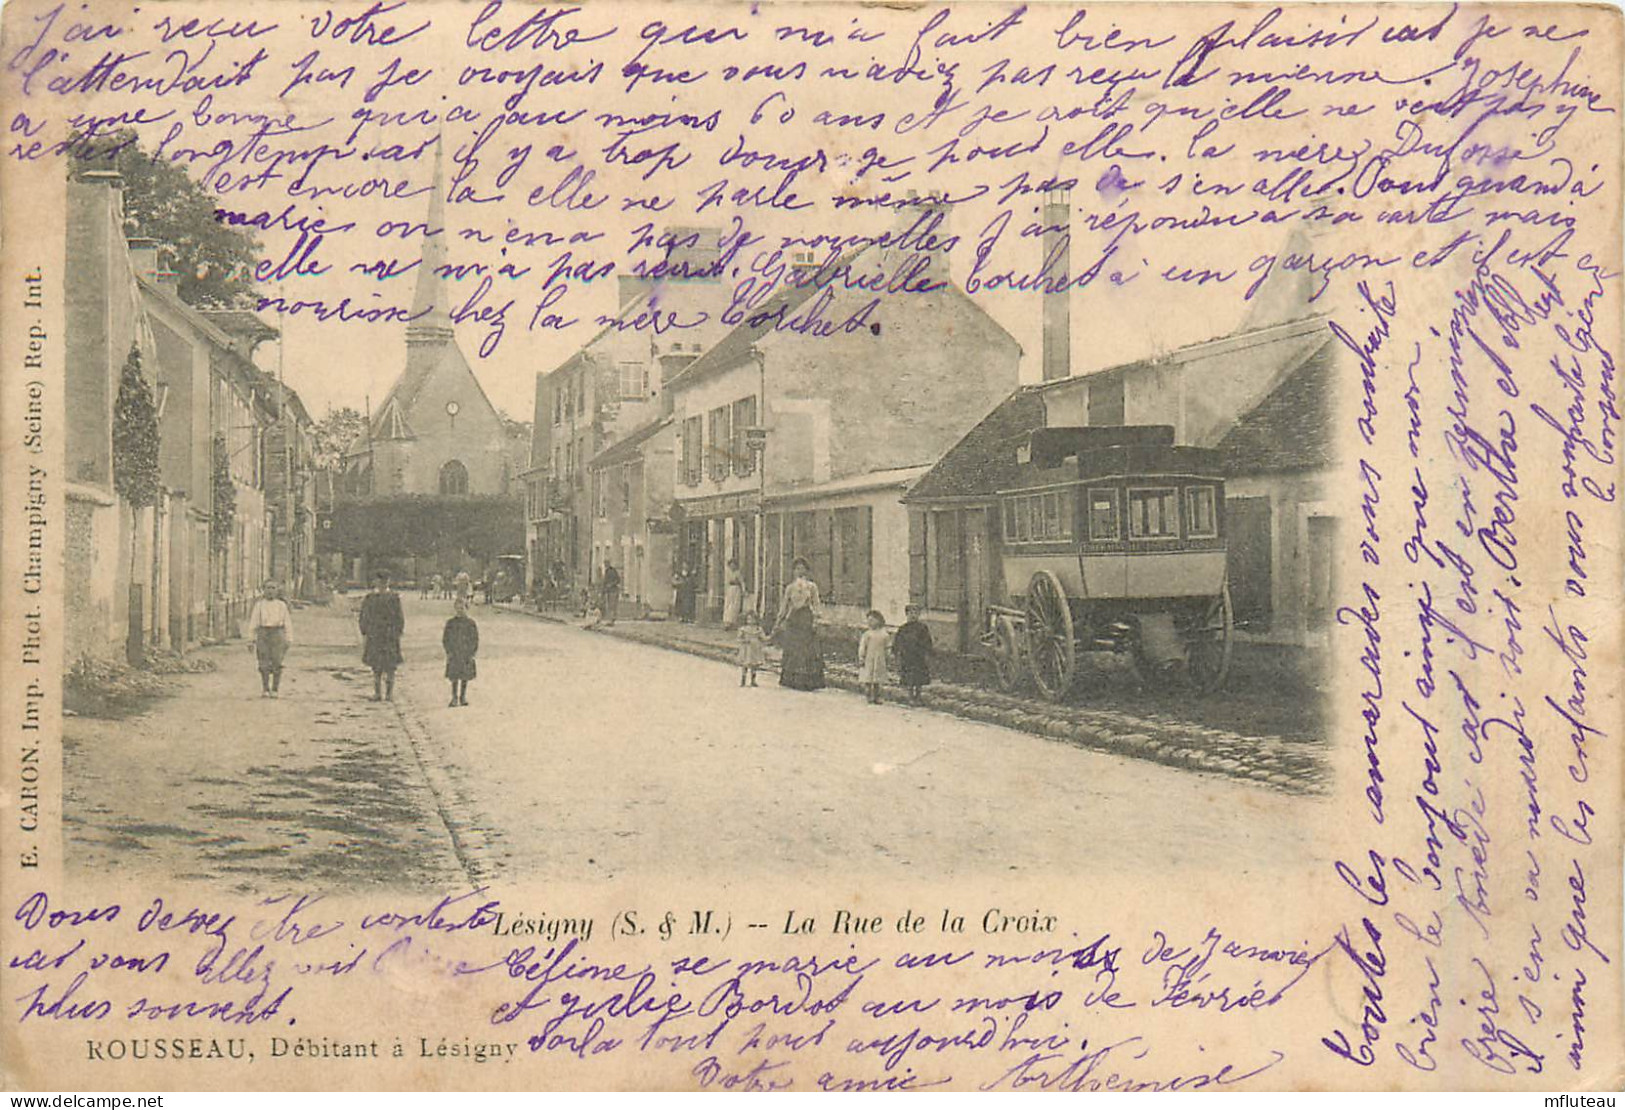 J'ai reçu votre lettre qui m'a fait bien plaisir car je ne
l'attendait pas je croyais que vous n'aviez pas reçu la mienne. Josephine
a une bonne qui a au moins 60 ans et je croit qu'elle ne veut pas y
rester longtemp. car il y a trop d'ouvrage pour elle. la mère Dufossé
est encore la elle ne parle même pas de s'en aller. Pour quand à
marie on n'en a pas de nouvelles J'ai répondu a sa carte mais
elle ne m'a pas récrit. Gabrielle Corchet à un garçon et il est en
nourisse chez la mère Corchet.
E. CARON, Imp. Phot. Champigny (Seine) Rep. Int.
Toutes les camarades vous souhaite
bien le bonjour ainsi que mon
frère car il est en permission
il s'en va mardi soir. Berthe et
ainsi que les enfants vous souhaite
le bonsoir
Vous devez être contente
car vous allez voir
plus souvent.
Lésigny (S. & M.) -- La Rue de la Croix
Célime se marie au mois de Janvier
et Julie Bordot au mois de Février
voila tout pour aujourd'hui.
Votre amie Arthémise
ROUSSEAU, Débitant à Lésigny
mfluteau